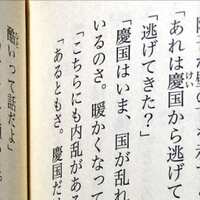 「あれは慶国から逃げて
けい
「逃げてきた？」
「慶国はいま、国が乱れ
いるのさ。暖かくなって
「こちらにも内乱があ
「あるともさ。慶国だ
酷いって話だよ」